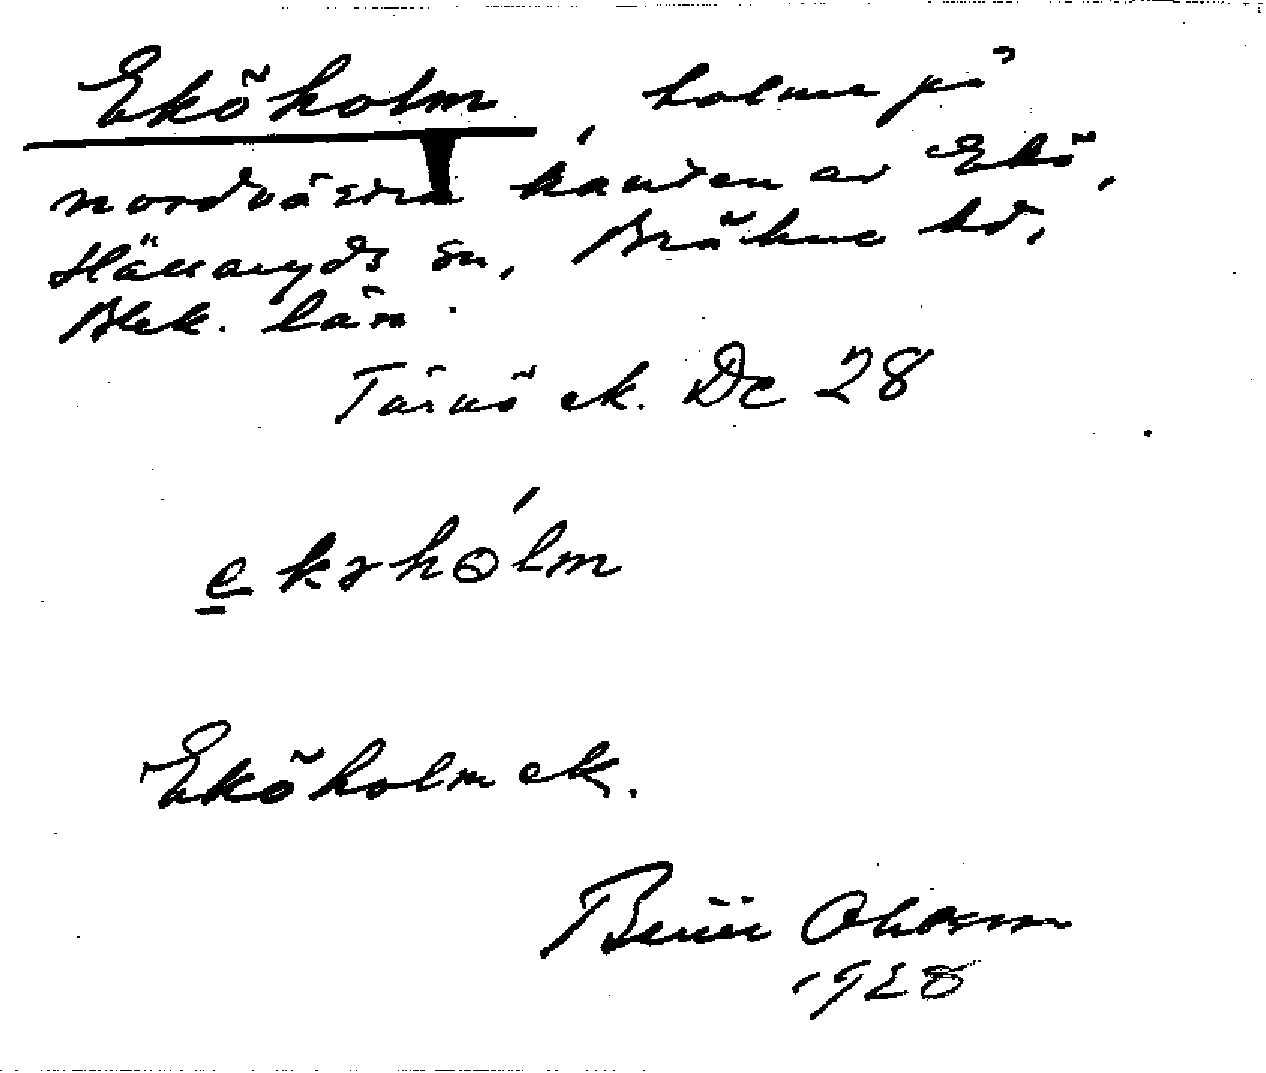 Eköholm, holme på
nordvästra kanten av Ekö,
Hällaryds sn, Bräkne hd,
Blek. län.
Tärnö ek. De 28
ekəhólm
Eköholm ek.
Ohlsson
1928